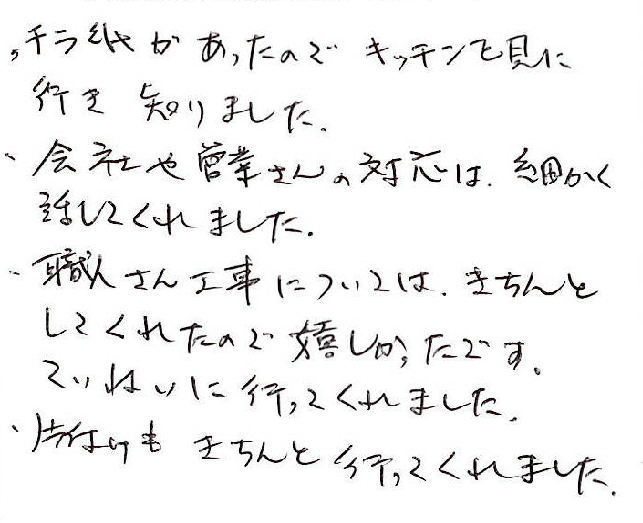 ・チラ紙があったのでキッチンを見に
行き 知りました。
・会社や営業さんの対応は、細かく
話してくれました。
・職人さん工事については、きちんと
してくれたので嬉しかったです。
ていねいに行ってくれました。
・片付けも きちんと行ってくれました。